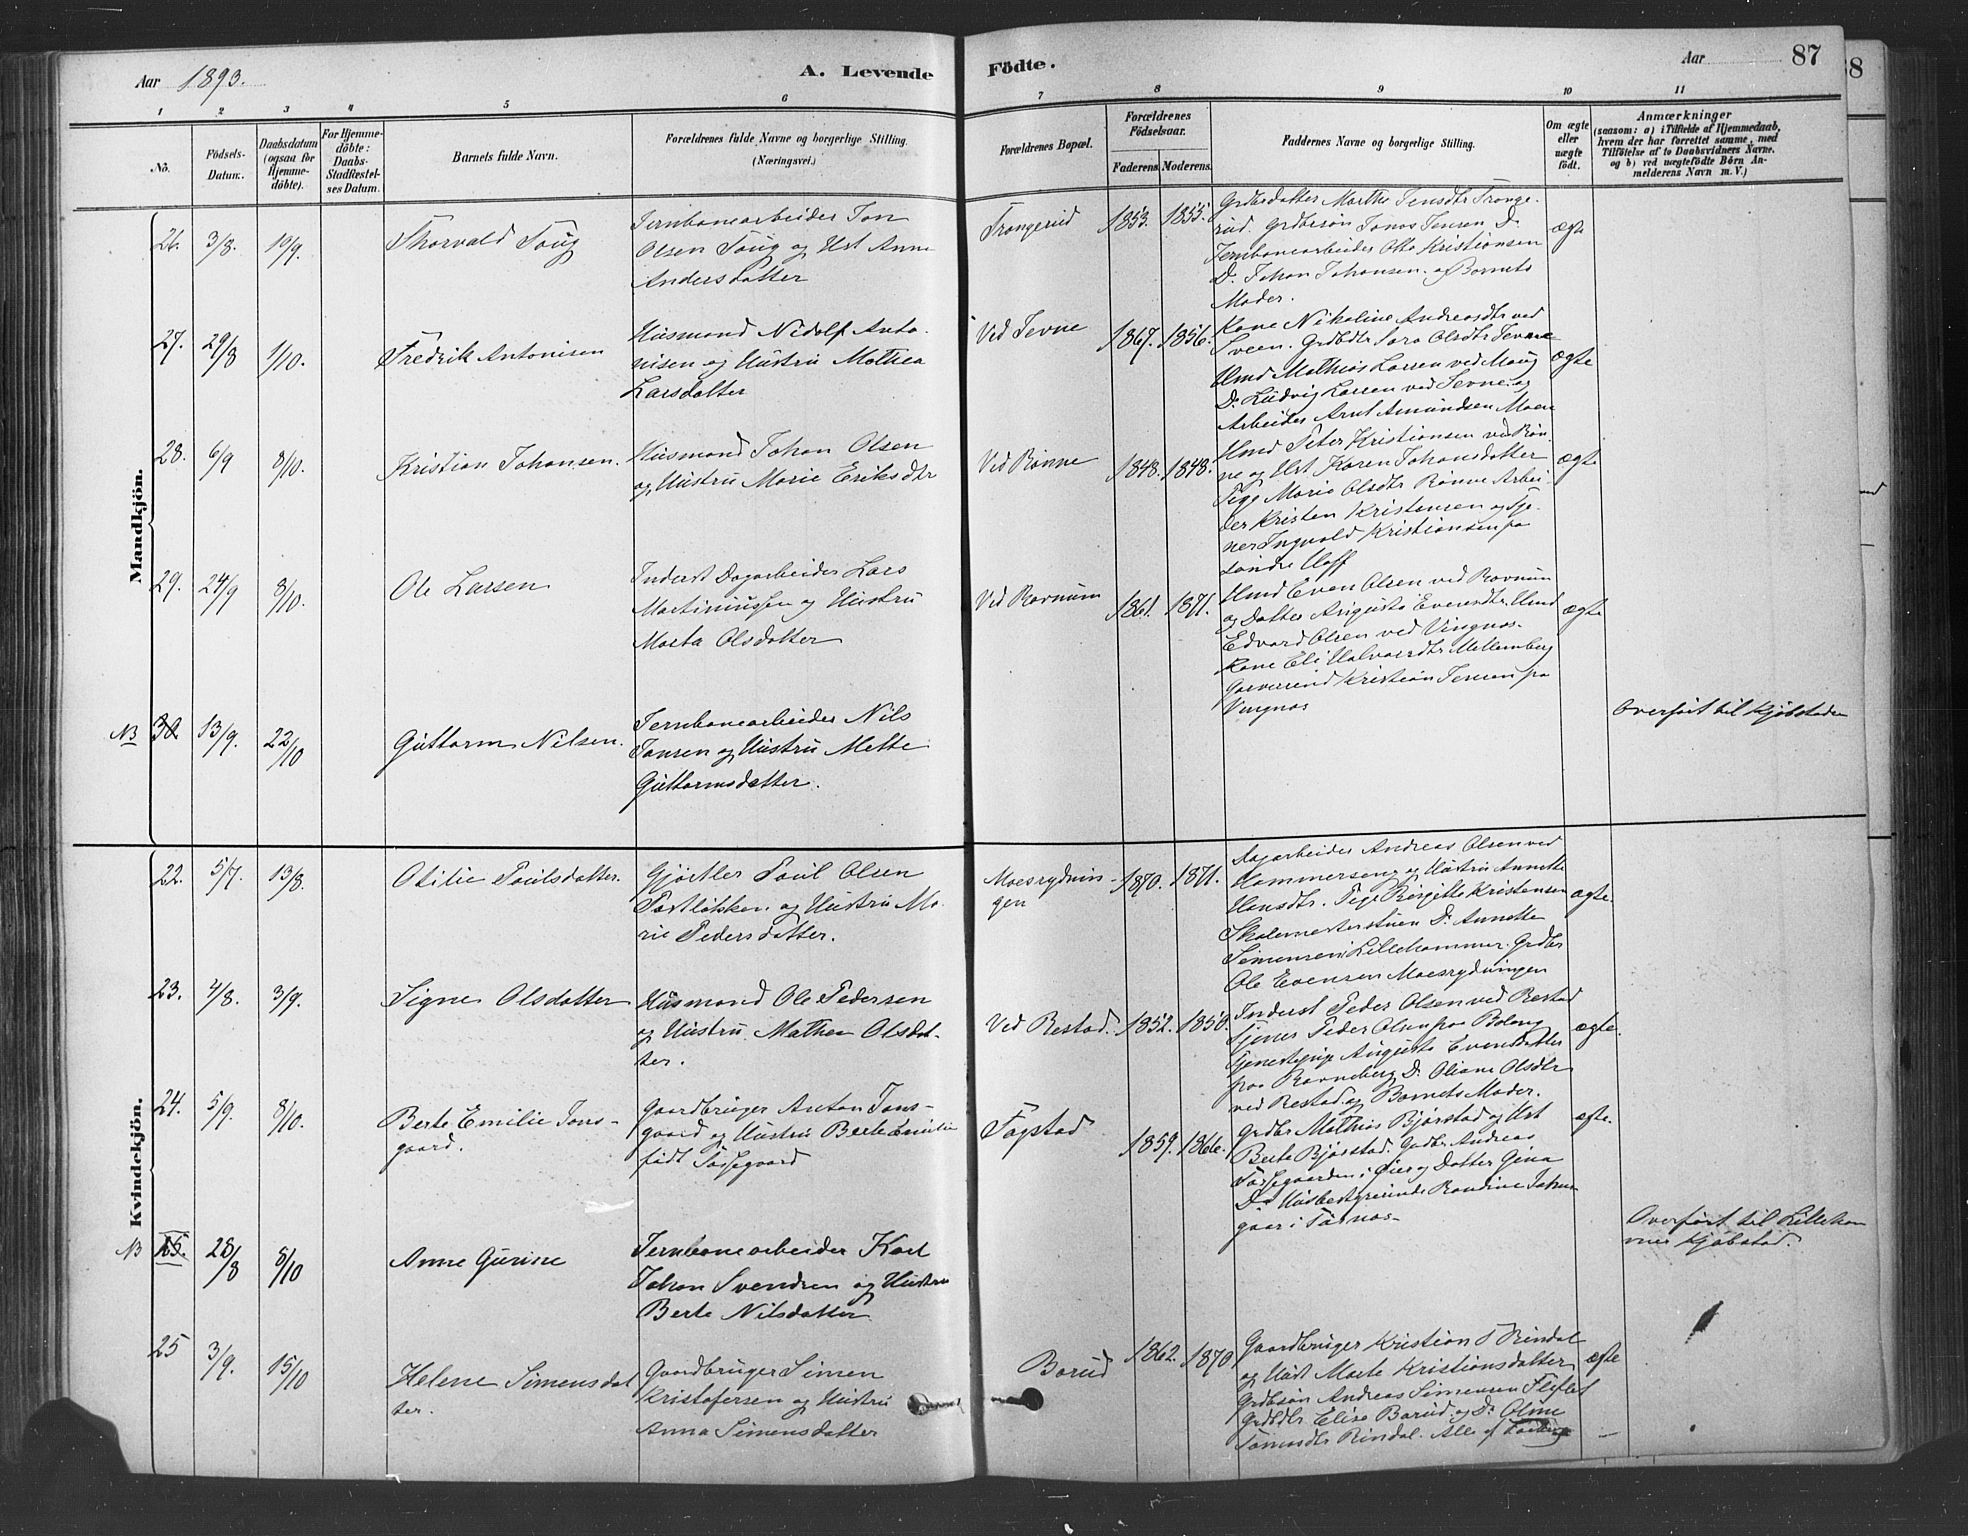 Aar 1893.
A. Levende Födte.
Aar 87
1 2 3 4 5 6 7 8 9 10 11
No.
Födsels-Datum.
Daabsdatum (ogsaa for Hjemmedöbte).
For Hjemmedöbte: Daabs-Stadfæstelses Datum.
Barnets fulde Navn.
Forældrenes fulde Navne og borgerlige Stilling. (Næringsvei.)
Forældrenes Bopæl.
Forældrenes Födselsaar.
Faderens. Moderens.
Faddernes Navne og borgerlige Stilling.
Om ægte eller uægte födt.
Anmærkninger
(saasom: a) i Tilfælde af Hjemmedaab, hvem der har forrettet samme, med Tilföielse af to Daabsvidners Navne, og b) ved uægtefödte Börn Anmelderens Navn m. V.)
Mandkjön.
26. 3/8. 10/9. Thorvald Toug
Jernbanearbeider Jon
Olsen Toug og Hst Anne
Andersdatter
Trongerud 1853. 1855.
Grdbrdatter Marthe Jensdtr Tronge-
rud. Grdbrsøn Jonas Jensen D.
Jernbanearbeider Otto Kristiansen
D. Johan Johansen. og Barnets
Moder.
ægte
27. 29/8 1/10. Fredrik Antonisen
Husmand Nidolf Anto-
nisen og Hustru Mathea
Larsdatter
Ved Jevne 1867. 1856.
Kone Nikoline Andreasdtr ved
Sveen. Grdbdtr Sara Olsdtr Jevne
Hmd Mathias Larsen ved Maug
D. Ludvig Larsen ved Jevne og
Arbeider Arnt Amundsen Moen
ægte
28. 6/9 8/10. Kristian Johansen.
Husmand Johan Olsen
og Hustru Marie Eriksdtr
Ved Rønne 1848. 1848.
Hmd Peter Kristiansen ved Røn-
ne og Hst Karen Johansdatter
Pige Marie Olsdtr Rønne Arbei-
der Kristen Kristensen og Tje-
ner Ingvald Kristiansen paa
søndre Hoff
ægte
29. 24/9 8/10. Ole Larsen
Inderst Dagarbeider Lars
Martiniussen og Hustru
Marta Olsdatter
Ved Rovnum 1861. 1871.
Hmd Even Olsen ved Rovnum
og Datter Augusta Evensdtr. Hmd
Edvard Olsen ved Vingnas.
Kone Eli Halvorsdtr Mellemberg
Garversvend Kristian Jensen paa
Vingnas
ægte
NB 30. 13/9. 22/10 Guttorm Nilsen.
Jernbanearbeider Nils
Jonsen og Hustru Mette
Guttormsdatter.
Overført til Kjøbstaden
Kvindekjön.
22. 5/7. 13/8. Otilie Poulsdatter.
Gjørtler Poul Olsen
Postløkken. og Hustru Ma-
rie Pedersdatter.
Moesrydnin-
gen 1870. 1871.
Dagarbeider Andreas Olsen ved
Hammerseng og Hustru Annette
Hansdtr. Pige Birgitte Kristensen
Skolemesterstuen D. Annette
Simensen Lillehammer. Grdbr
Ole Evensen Moesrydningen
ægte.
23. 4/8. 3/9. Signe Olsdatter
Husmand Ole Pedersen
og Hustru Mathea Olsdat-
ter.
Ved Restad. 1852. 1850.
Inderst Peder Olsen ved Restad
Tjener Peder Olsen paa
Tjenestepige Augusta Evensdatter
paa Ravneberg D. Oliane Olsdtr
ved Restad og Barnets Moder.
ægte.
24. 5/9. 8/10. Berte Emilie Jons-
gaard.
Gaardbruger Anton Jons-
gaard og Hustru Berte Emilie
født Tossegaard
Fogstad 1859. 1866.
Grdbr Mathias Bjørstad og Hst
Berte Bjørstad. Grdbr Andreas
Tossegaarden i Øier og Datter Gina
D. Husbestyrerinde Randine
gaar i
ægte.
NB 25. 28/8 8/10 Anne Gurine
Jernbanearbeider Karl
Johan Svendsen og Hustru
Berte Nilsdatter
Overført til Lilleham-
mer Kjøbstad.
25 3/9. 15/10 Helene Simensdat
ter.
Gaardbruger Simen
Kristofersen og Hustru
Anna Simensdatter
Borud 1862. 1870
Gaardbruger Kristian Rindal
og Hust Marte Kristiansdatter
Grdbrsøn Andreas Simensen Fliflet
Grdbdtr Elise Borud og D. Oline
Rindal. Alle af Faaberg
ægte